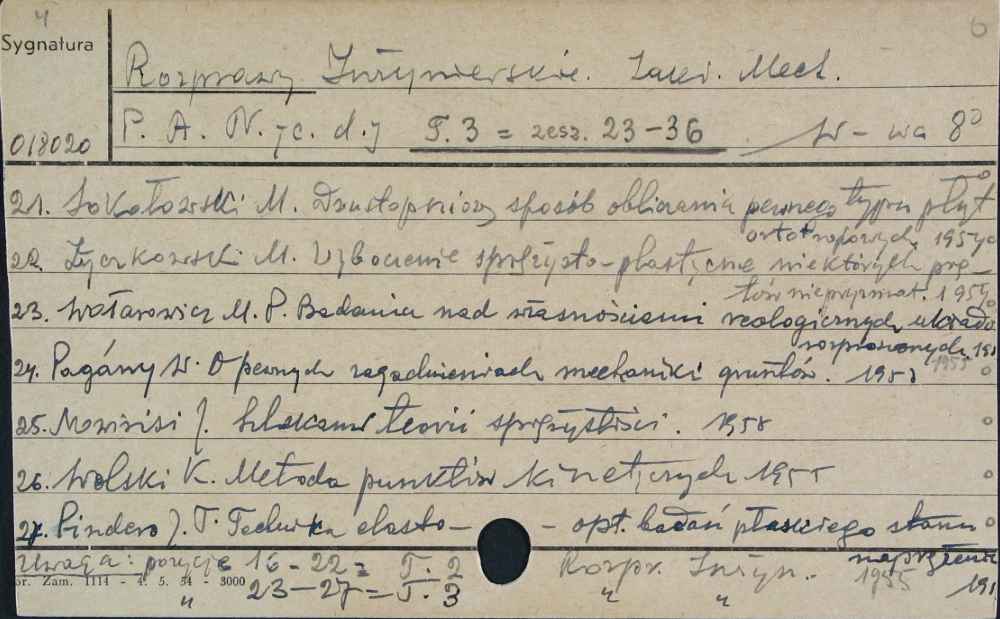 4 6
Sygnatura
Rozprawy Inżynierskie. Zakł. Mech.
018020 P. A. N. /c. d./ T. 3 = zesz. 23-36 W-wa 8°
21. Sokołowski M. Dwustopniowy sposób obliczania pewnego typu płyt
ortotropowych. 1954
22. Życzkowski M. Wyboczenie sprężysto-plastyczne niektórych prę-
tów niepryzmat. 1954
23. Wołarowicz M. P. Badania nad własnościami reologicznych układó
rozproszonych. 195
1955
24. Pagány W. O pewnych zagadnieniach mechaniki gruntów. 1955
25. J. teorii sprężystości. 1955
26. Wolski K. Metoda punktów kinetycznych 1955
27. Pindera J. T. Technika elasto- - opt. badań płaskiego stanu
naprężenia
Uwaga: pozycje 16-22 = T. 2 Rozpr. Inżyn. 1955
or. Zam. 1114 - 4. 5. 54 - 3000
" 23-27 = T. 3 " " 195